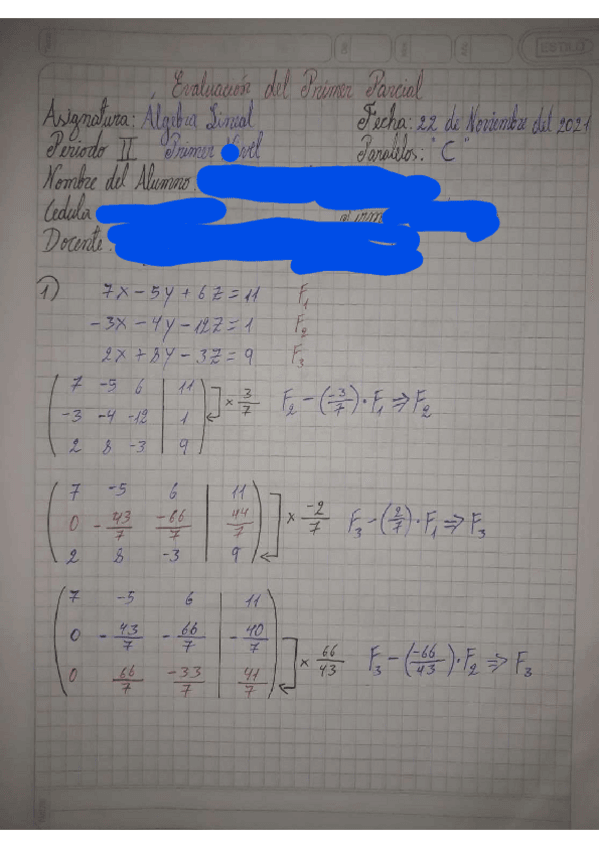 ESTILO
Evaluación del Primer Parcial
Asignatura: Álgebra Lineal Fecha: 22 de Noviembre del 2021
Periodo II Primer Paralelos: "C"
Nombre del Alumno
Cedula
Docente
1) 7x - 5y + 6z = 11 F₁
-3x - 4y - 12z = 1 F₂
2x + 8y - 3z = 9 F₃
7 -5 6 | 11
-3 -4 -12 | 1 × 3/7 F₂ - (-3/7) · F₁ ⇒ F₂
2 8 -3 | 9
7 -5 6 | 11
0 -43/7 -66/7 | 44/7 × -2/7 F₃ - (2/7) · F₁ ⇒ F₃
2 8 -3 | 9
7 -5 6 | 11
0 -43/7 -66/7 | -40/7 × 66/43 F₃ - (-66/43) · F₂ ⇒ F₃
0 66/7 -33/7 | 41/7